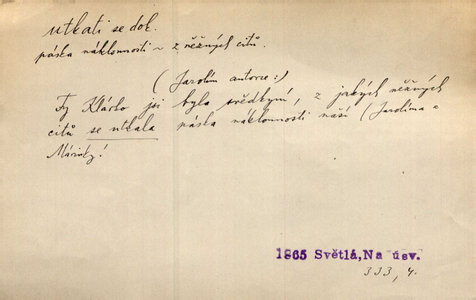 utkati se dok.
páska náklonnosti ~ z něžných citů.
(Jarolím autorce:)
Ty Klárko jsi byla svědkyní, z jakých něžných
citů se utkala páska náklonnosti naší (Jarolíma a
Márinky!
1865 Světlá, Na úsv.
333, 4.